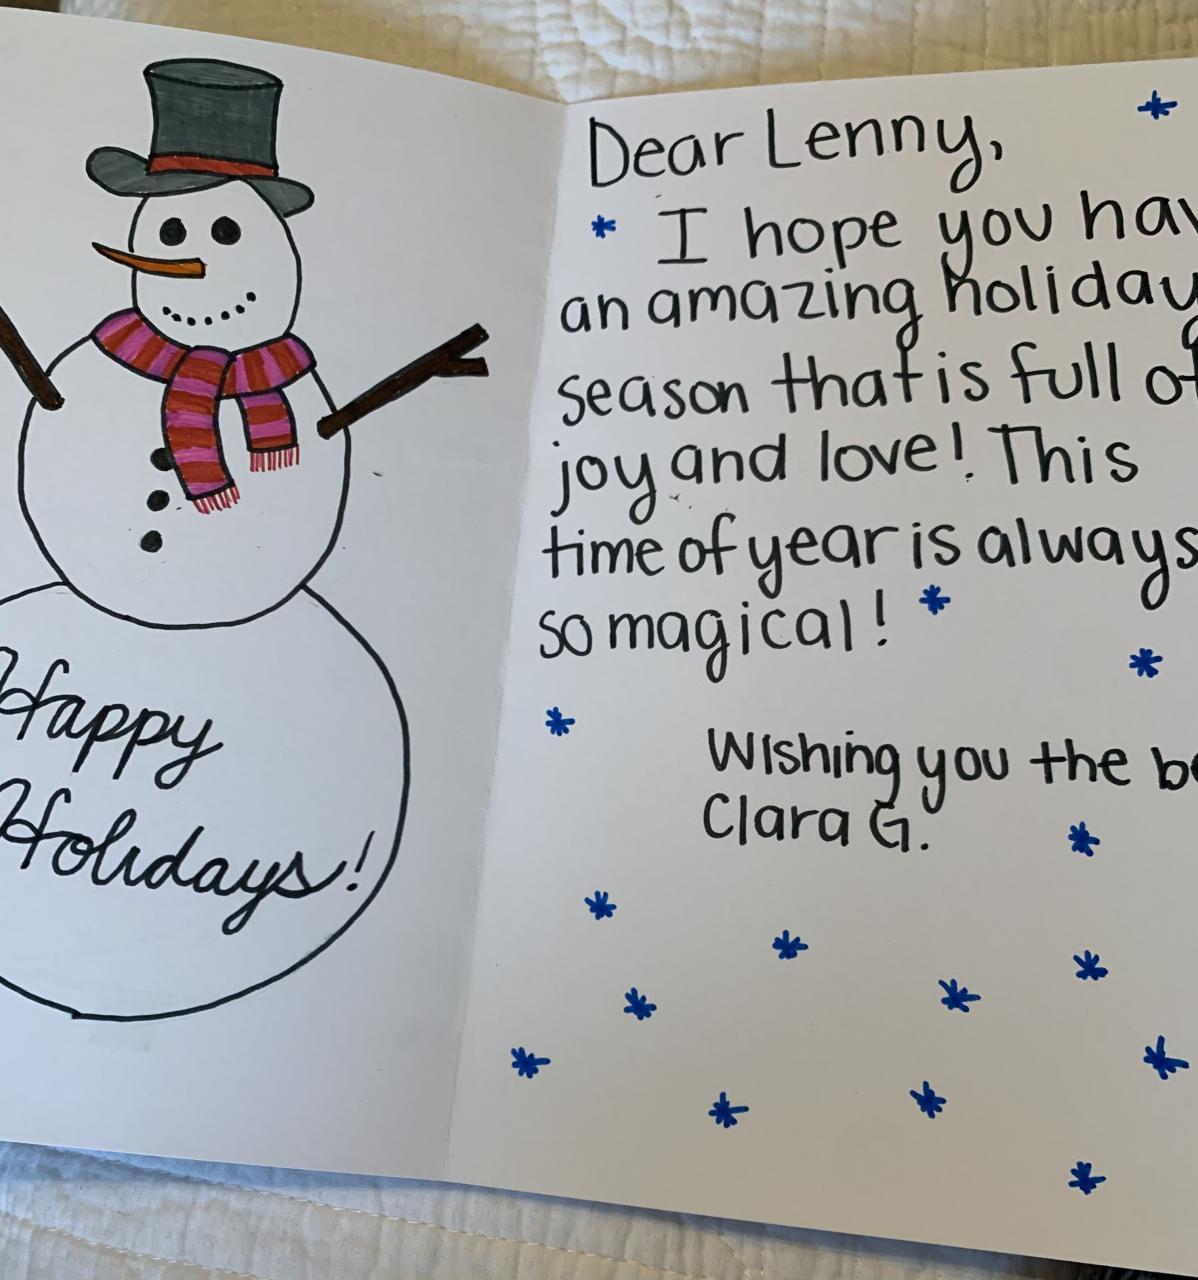 Happy
Holidays!
Dear Lenny,
I hope you hav
an amazing holiday
season that is full of
joy and love! This
time of year is always
so magical!
Wishing you the be
Clara G.